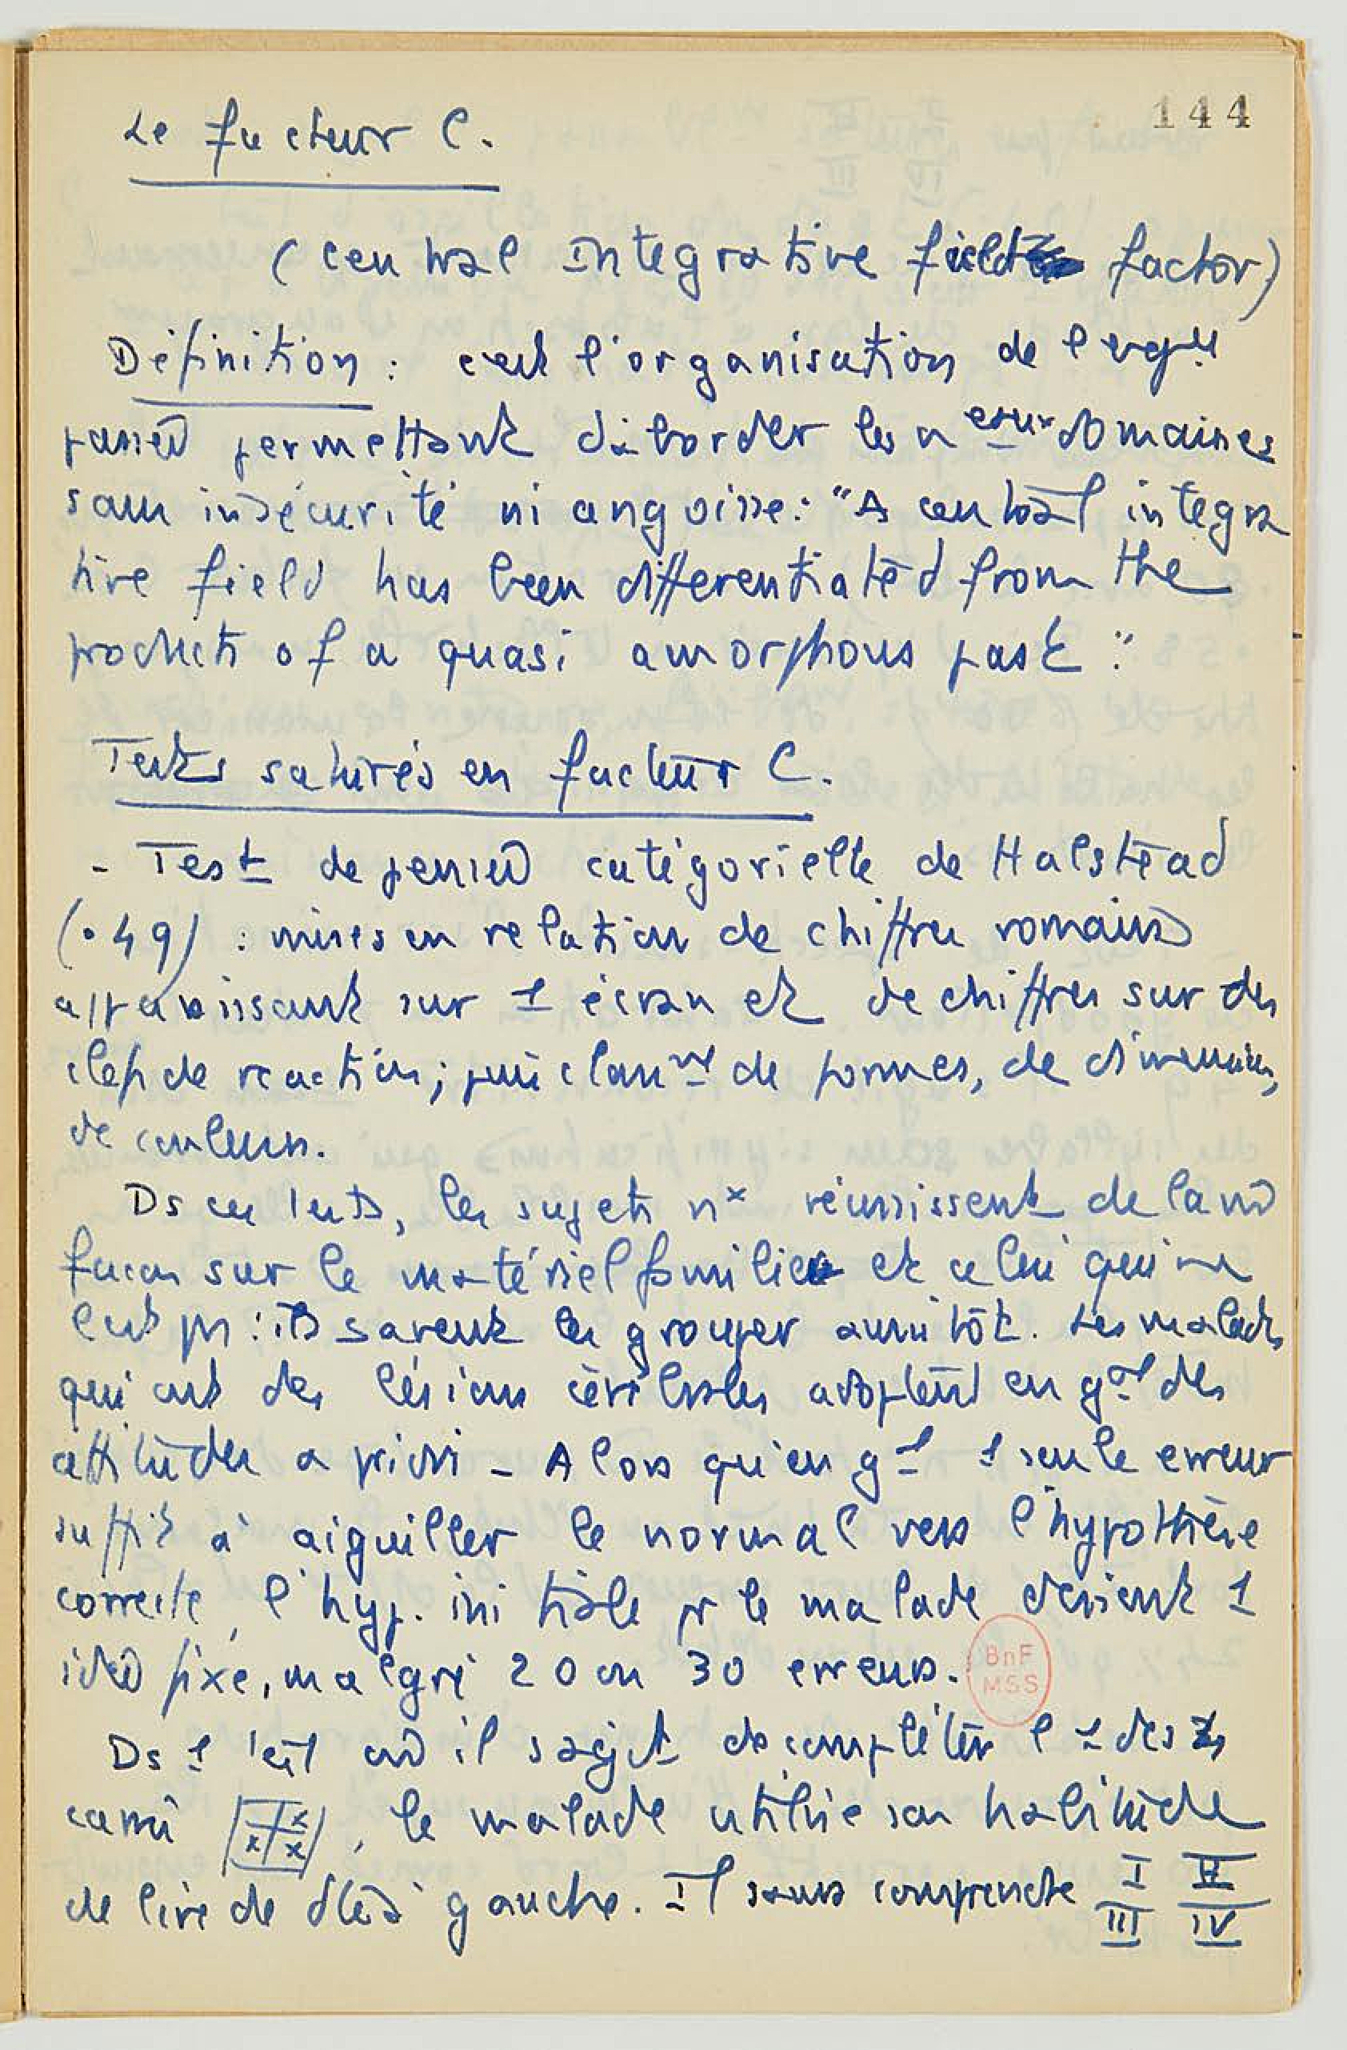 144
Le facteur C.
(central integrative field factor)
Définition : c'est l'organisation de l'
passée permettant d'aborder les n domaines
sans insécurité ni angoisse: "A central integra
tive field has been differentiated from the
products of a quasi amorphous past".
Tests saturés en facteur C.
- Test de pensée catégorielle de Halstead
(.49) : mises en relation de chiffres romains
apparaissant sur 1 écran et de chiffres sur des
clefs de réaction; puis classmt de formes, de dimensions,
de couleurs.
Ds ces tests, les sujets nx réussissent de la m
façon sur le matériel familier et celui qui ne
l'est pas : ils savent les grouper aussitôt. Les malades
qui ont des lésions cérébrales adoptent en gal des
attitudes a priori - Alors qu'en gal 1 seule erreur
suffit à aiguiller le normal vers l'hypothèse
correcte, l'hyp. initiale pr le malade devient 1
idée fixe, malgré 20 ou 30 erreurs.
BnF
MSS
Ds 1 test où il s'agit de compléter l'1 des
carré x x x, le malade utilise son habitude
de lire de dte à gauche. Il sans comprendre I II
III IV